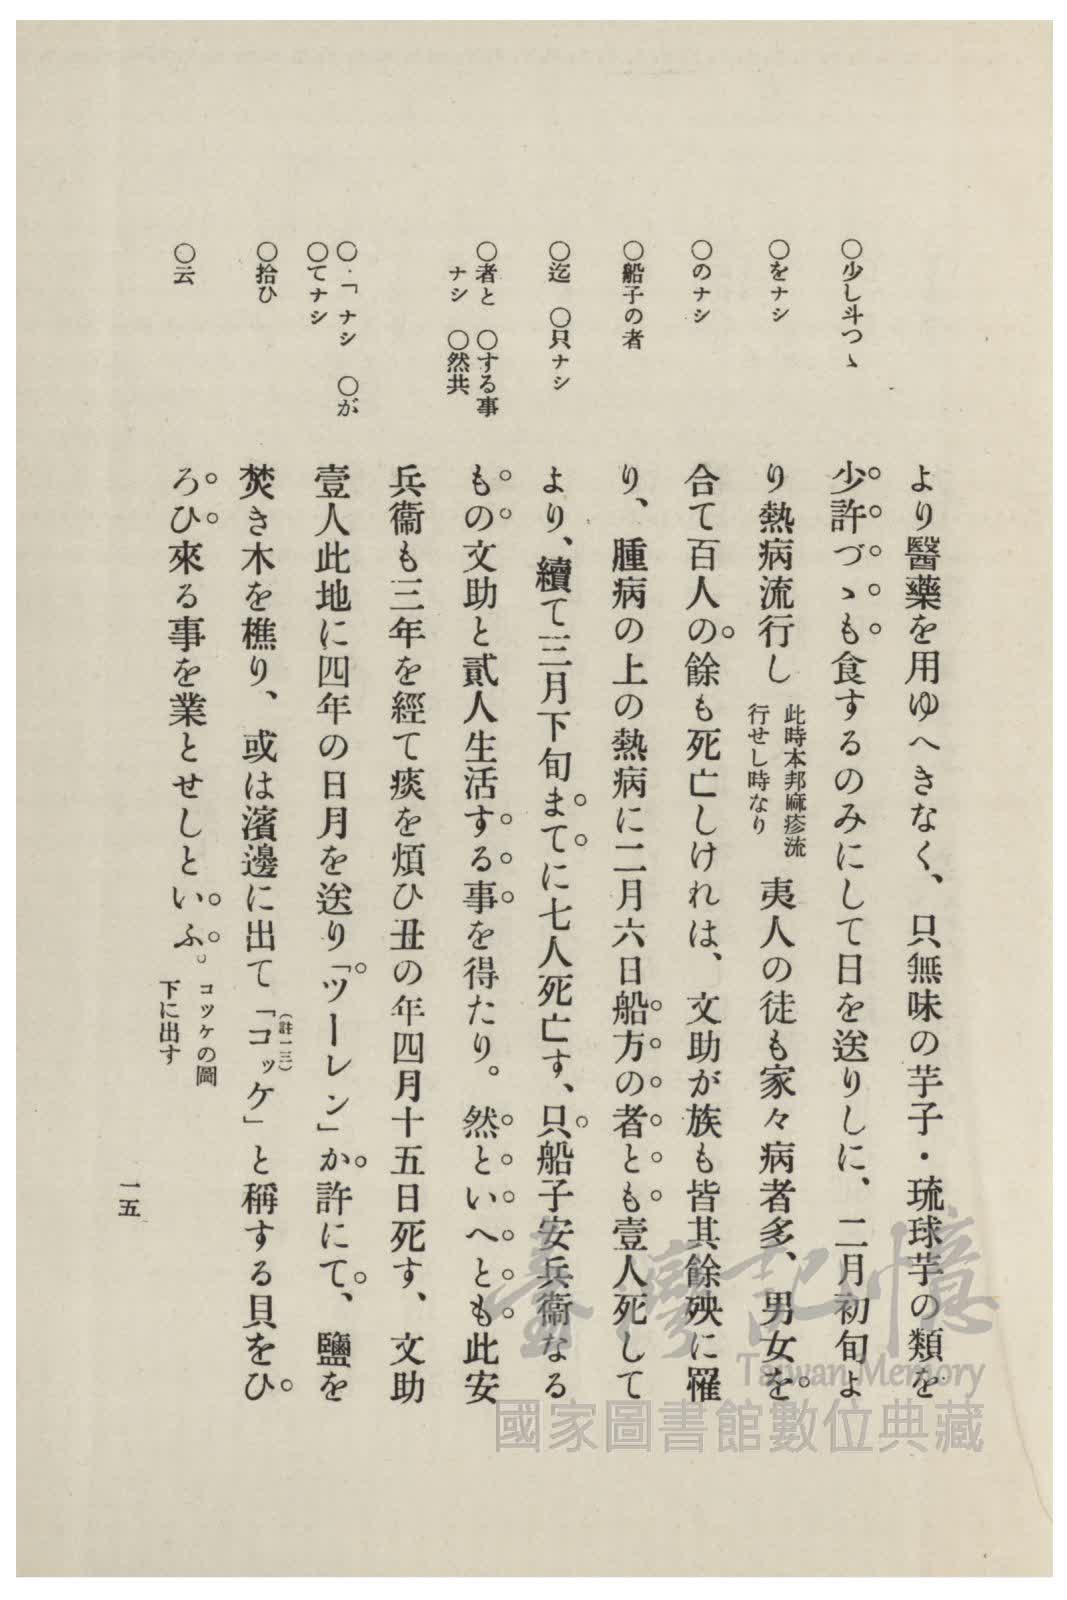 より醫藥を用ゆへきなく、只無味の芋子・琉球芋の類を
○少し斗つゝ
少許づゝも食するのみにして日を送りしに、二月初旬よ
○をナシ
り熱病流行し此時本邦麻疹流行せし時なり夷人の徒も家々病者多、男女を
○のナシ
合て百人の餘も死亡しけれは、文助が族も皆其餘殃に罹
○船子の者
り、腫病の上の熱病に二月六日船方の者とも壹人死して
○迄 ○只ナシ
より、續て三月下旬まてに七人死亡す、只船子安兵衞なる
○者と ○する事
ナシ ○然共
もの文助と貳人生活する事を得たり。然といへとも此安
兵衞も三年を經て痰を煩ひ丑の年四月十五日死す、文助
○.「ナシ ○が
○てナシ
壹人此地に四年の日月を送り「ツーレン」か許にて、鹽を
○拾ひ
焚き木を樵り、或は濱邊に出て「コッケ」(註一三)と稱する貝をひ
○云
ろひ來る事を業とせしといふ。コッケの圖下に出す
一五
臺灣記憶
Taiwan Memory
國家圖書館數位典藏